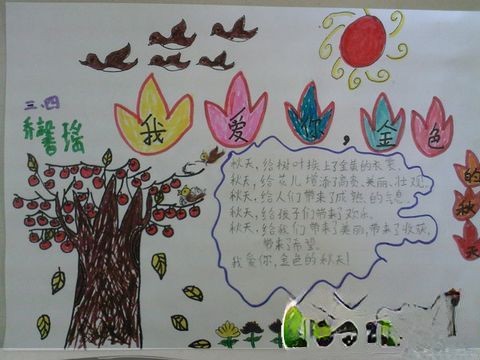 三、四
我爱你,金色
的秋天
秋天,给树叶换上了金黄的衣裳。
秋天,给花儿增添了高贵、美丽、壮观。
秋天,给人们带来了成熟的气息。
秋天,给孩子们带来了欢乐。
秋天,给我们带来了美丽,带来了收获,
带来了希望。
我爱你,金色的秋天!